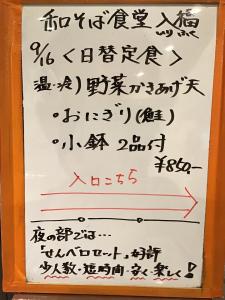 和そば食堂 入福
いりふく
9/16 〈日替定食〉
温・冷)野菜かきあげ天
・おにぎり(鮭)
・小鉢 2品付
¥850,-
入口こちら
夜の部では…
「せんベロセット」好評
少人数・短時間・安く・楽しく!